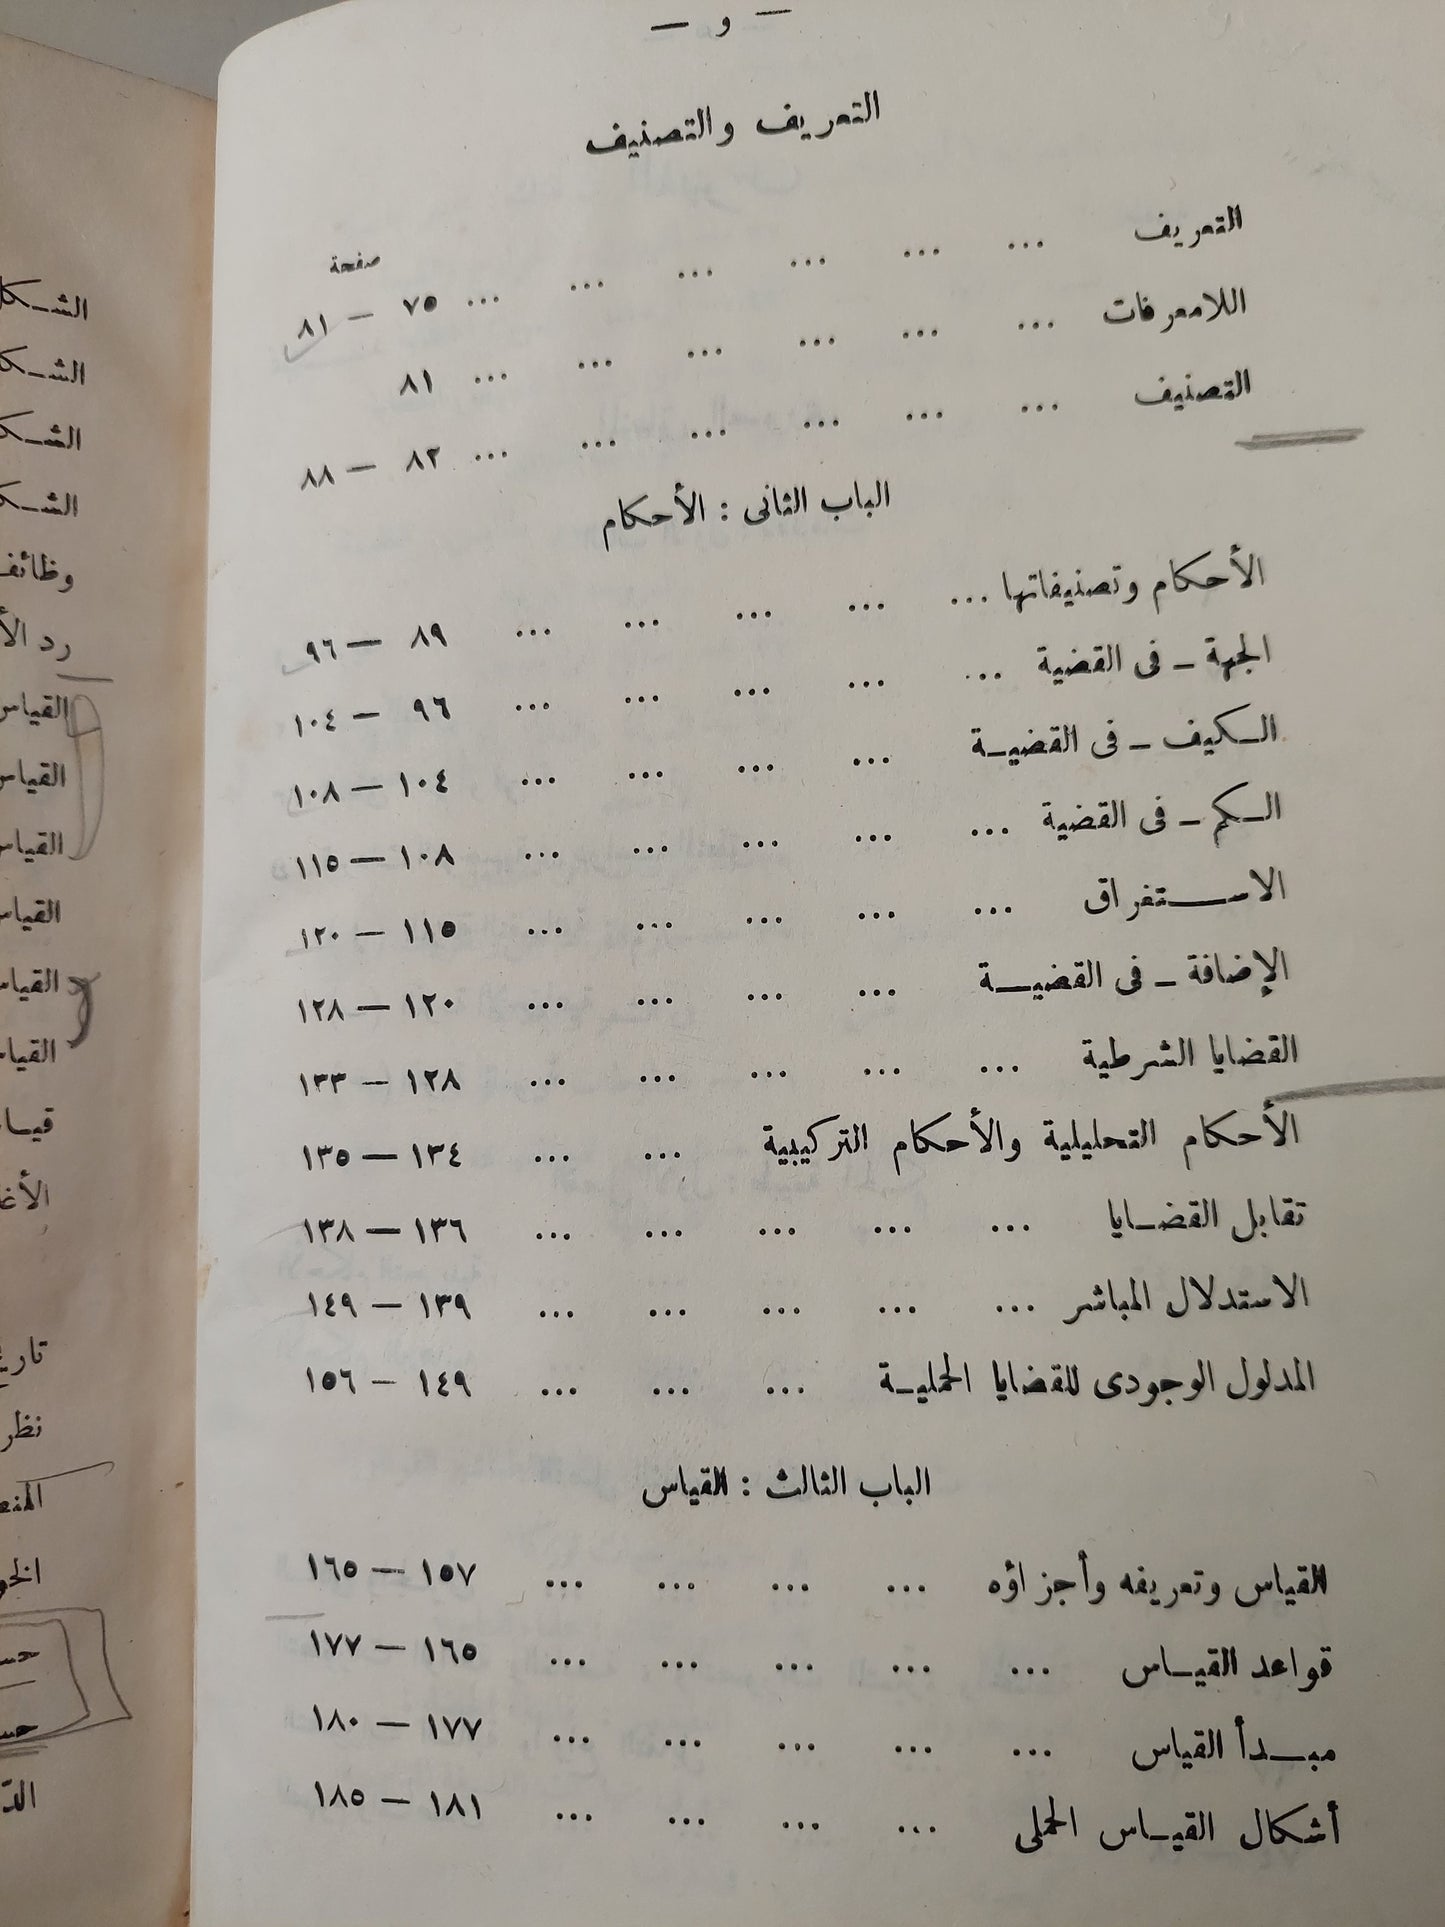 — و —
التعريف والتصنيف
صفحة
التعريف ... ... ... ... ... ... ٧٥ — ٨١
اللامعرفات ... ... ... ... ... ... ٨١
التصنيف ... ... ... ... ... ... ٨٢ — ٨٨
الباب الثانى : الأحكام
الأحكام وتصنيفاتها ... ... ... ... ... ٨٩ — ٩٦
الجهة – فى القضية ... ... ... ... ... ٩٦ — ١٠٤
الـكيف – فى القضيـة ... ... ... ... ١٠٤ — ١٠٨
الـكم – فى القضية ... ... ... ... ... ١٠٨ — ١١٥
الاستغراق ... ... ... ... ... ١١٥ — ١٢٠
الإضافة – فى القضيـة ... ... ... ... ١٢٠ — ١٢٨
القضايا الشرطية ... ... ... ... ... ١٢٨ — ١٣٣
الأحكام التحليلية والأحكام التركيبية ... ... ١٣٤ — ١٣٥
تقابل القضـايا ... ... ... ... ... ١٣٦ — ١٣٨
الاستدلال المباشر ... ... ... ... ... ١٣٩ — ١٤٩
المدلول الوجودى للقضايا الحمليـة ... ... ... ١٤٩ – ١٥٦
الباب الثالث : القياس
القياس وتعريفه وأجزاؤه ... ... ... ... ١٥٧ — ١٦٥
قواعد القيـاس ... ... ... ... ... ١٦٥ — ١٧٧
مبـدأ القياس ... ... ... ... ... ١٧٧ — ١٨٠
أشكال القيـاس الحملى ... ... ... ... ١٨١ — ١٨٥
القياس
القياس
القياس
القياس